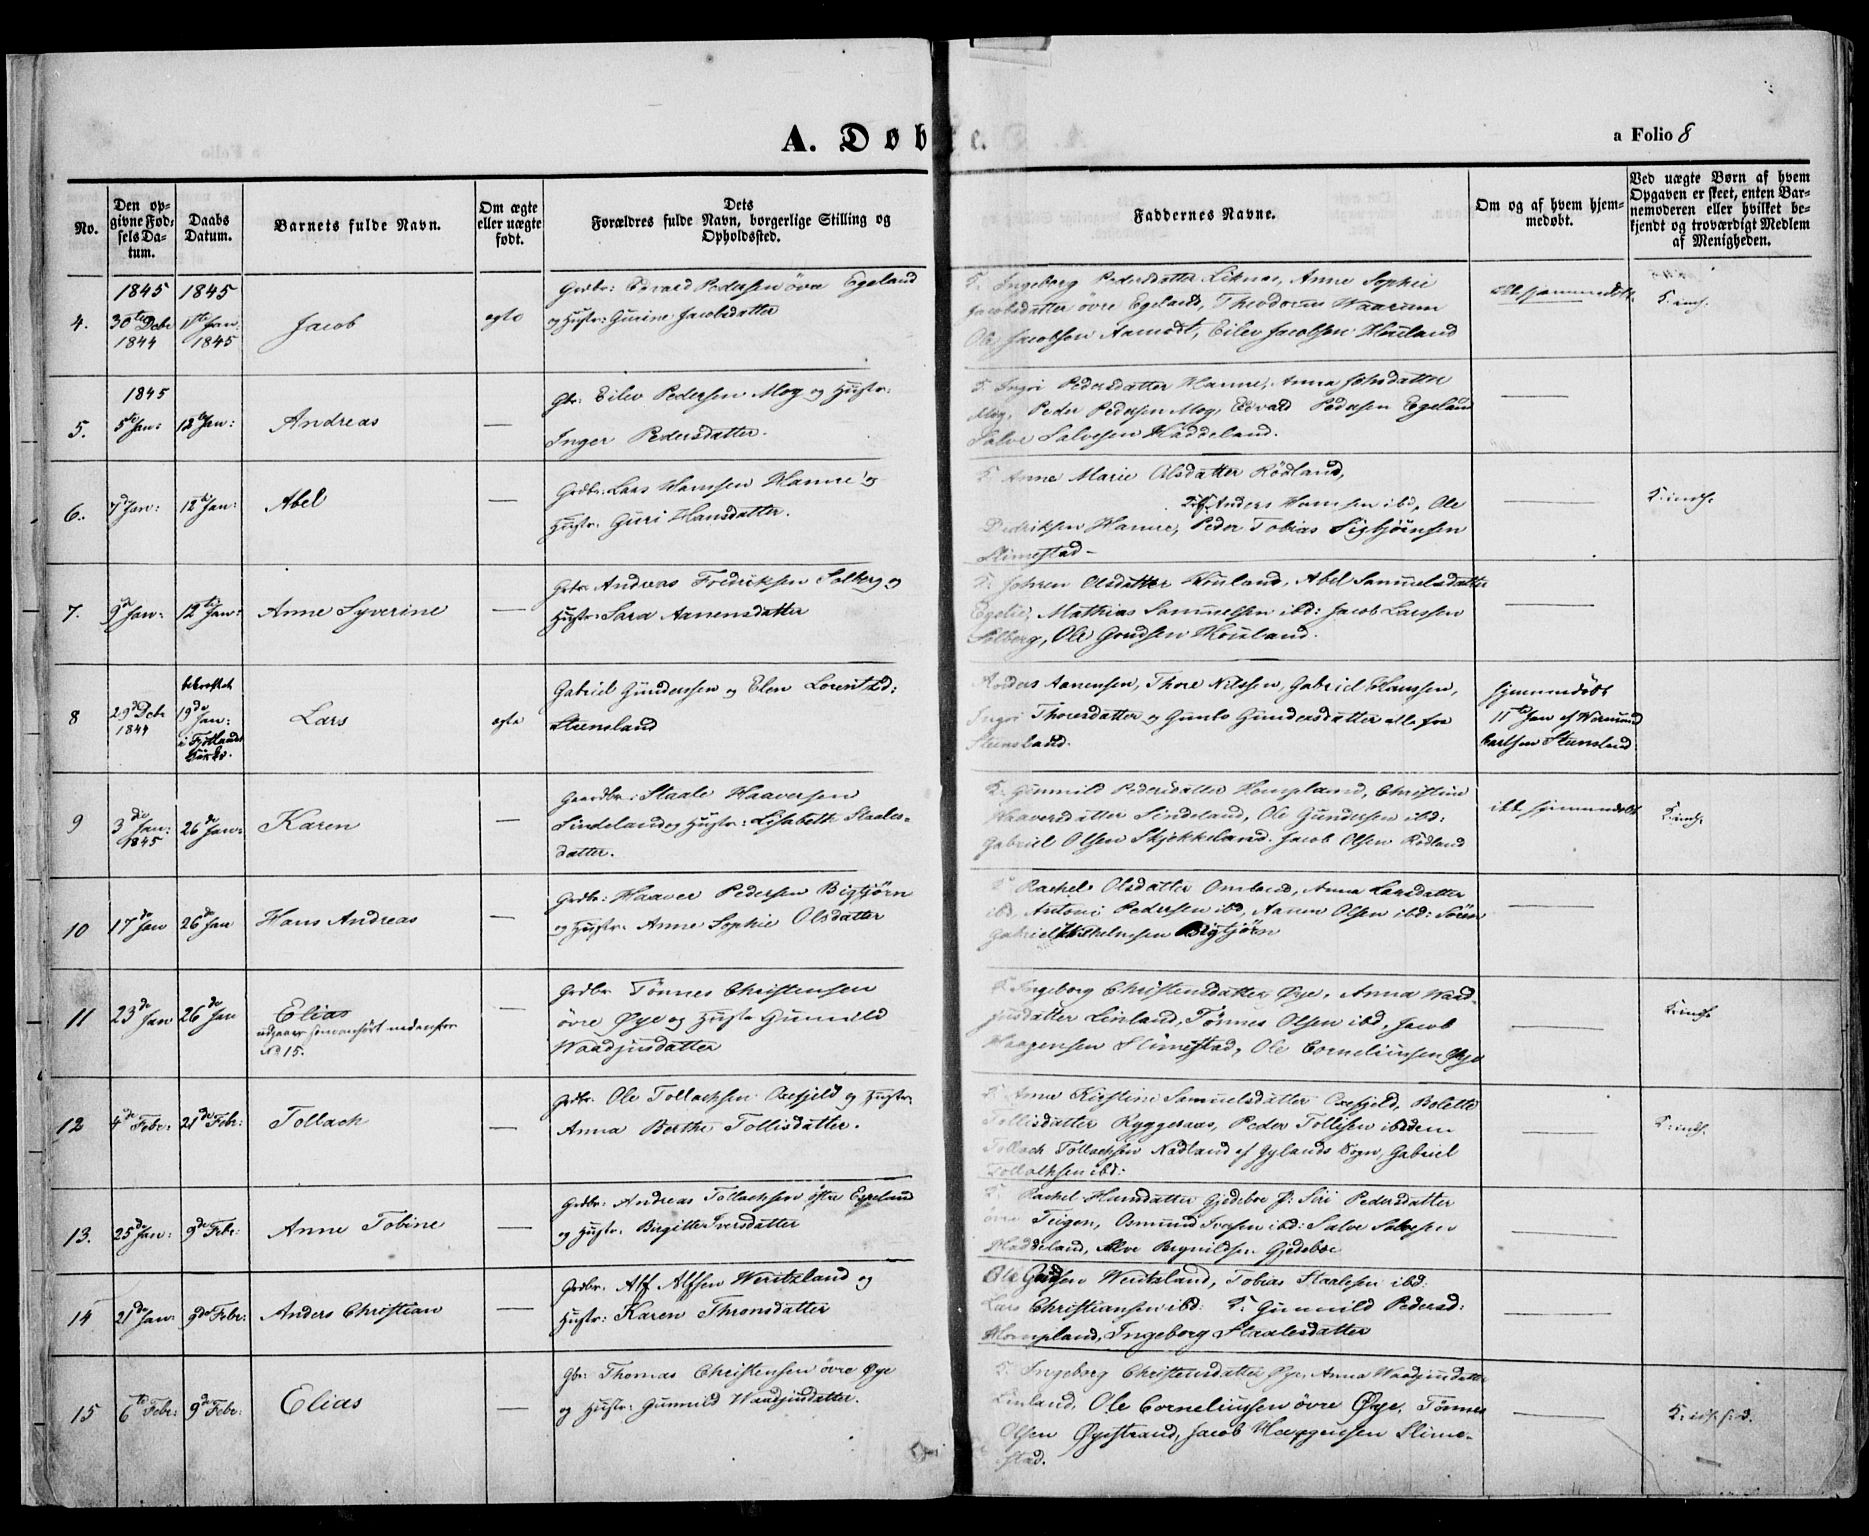 A. Døbte.
a Folio 8
No.
Den opgivne Fødsels Datum.
Daabs Datum.
Barnets fulde Navn.
Om ægte eller uægte født.
Dets Forældres fulde Navn, borgerlige Stilling og Opholdssted.
Faddernes Navne.
Om og af hvem hjemmedøbt.
Ved uægte Børn af hvem Opgaven er skeet, enten Barnemoderen eller hvilket bekjendt og troværdigt Medlem af Menigheden.
1845 1845
4. 30te Decbr 1844
1845
Jacob
egte
Grdbr: Edvard Pedersen övre Egeland
og Hustr: Gurine Jacobsdatter
Ingeborg Pedersdatter Liknæs, Anne Sophie
Jacobsdatter övre Egeland, Theodorus Waarum
Ole Jacobsen Aamodt, Eilev Jacobsen Houland
ikke hjemmedöbt
1845
5. 5te Jan: 12te Jan:
Andreas
—
Gbr: Eilev Pedersen Moy og Hustr:
Inger Pedersdatter.
Ingri Pedersdatter Hamre, Anna
Moy, Peder Pedersen Moy, Edvard Pedersen Egeland
Salve Salvesen Haddeland.
6. 7de Jan: 12te Jan:
Abel
—
Grdbr: Lars Hansen Hamre og
Hustr: Guri Hansdatter.
Anne Marie Olsdatter Rödland,
Anders Hansen ibd, Ole
Hamre, Peder Tobias Sigbjörnsen
Slimestad –
7. 9de Jan: 12te Jan:
Anne Syverine
—
Andreas Fredriksen Solberg og
Hustr: Sara Aanensdatter
Olsdatter Houland, Abel Samuelsdatter
Egelie, Mathias Samuelsen ibd: Jacob Larsen
Solberg, Ole Houland.
8 29de Decbr 1844
bekræftet
19de Jan:
i Fjotlands
Kirke.
Lars
egte
Gabriel Gundersen og Elen Lorentsd:
Steensland
Anders Aanensen, Thore Nilssen, Gabriel Hanssen,
Ingri Thoresdatter og Gunlo Gundersdatter alle fra
Steensland.
hjemmedöbt
11te Jan af
Carlsen Steensland
9 3die Jan: 1845 26de Jan:
Karen
—
Gaardbr: Staale Haaversen
Sindeland og Hustr: Lisabeth Staales-
datter.
Gunnild Pedersdatter Hompland, Christine
Haaversdatter Sindeland, Ole Gundersen ibd:
Gabriel Olsen Skjekkeland. Jacob Olsen Rödland
ikke hjemmedöbt
10 17de Jan 26de Jan
Hans Andreas
—
Grdbr: Haaver Pedersen Bigtjörn
og Hustr: Anne Sophie Olsdatter
Rachel Olsdatter Omland, Anna Larsdatter
ibd, Antoni Pedersen ibd, Aanen Olsen ibd: Sören
Gabriel Bigtjörn
11 23de Jan 26de Jan
Elias
udgaaer som anfört nedenfor
No 15.
—
Grdbr Tönnes Christensen
övre Øye og Hustr Gunnild
Waadjusdatter
Ingeborg Christensdatter Øye, Anna Waad-
jusdatter Linland, Tönnes Olsen ibd, Jacob
Haagensen Slimestad, Ole Corneliussen Øye
12 4de Febr: 21de Febr:
Tollach
—
Grdbr. Ole Tollachsen Oxefjeld og Hustr:
Anna Berthe Tollisdatter.
Anna Kirstine Samuelsdatter Oxefjeld, Bolette
Tollisdatter Ryggeraas, Peder Tollisen ibidem
Tollach Tollachsen Nædland af Gylands Sogn, Gabriel
Tollachsen ibd:
13. 25de Jan: 9de Febr:
Anne Tobine
—
Grdbr: Andreas Tollachsen östre Egeland
og Hustr: Birgitte Iversdatter
Rachel Hansdatter Gjedeboe Siri Pedersdatter
Teigen, Osmund Iversen ibd: Salve Salvesen
Haddeland, Alve Gjedeboe
14 21de Jan: 9de Febr:
Anders Christian
—
Grdbr. Alf Alfsen Weritzland og
Hustr: Karen Thronsdatter
Ole Weritzland, Tobias Staalesen ibd:
Lars Christiansen ibd: Gunnild Pedersd:
Hompland, Ingeborg Staalesdatter
15 6te Febr: 9de Febr:
Elias
—
Gbr: Thomas Christensen övre Øye
og Hustr: Gunnild Waadjusdatter.
Ingeborg Christensdatter Øye, Anna Waadjusdatter
Linland, Ole Corneliussen övre Øye, Tönnes
Olsen Øyestrand, Jacob Haagensen Slime-
stad.